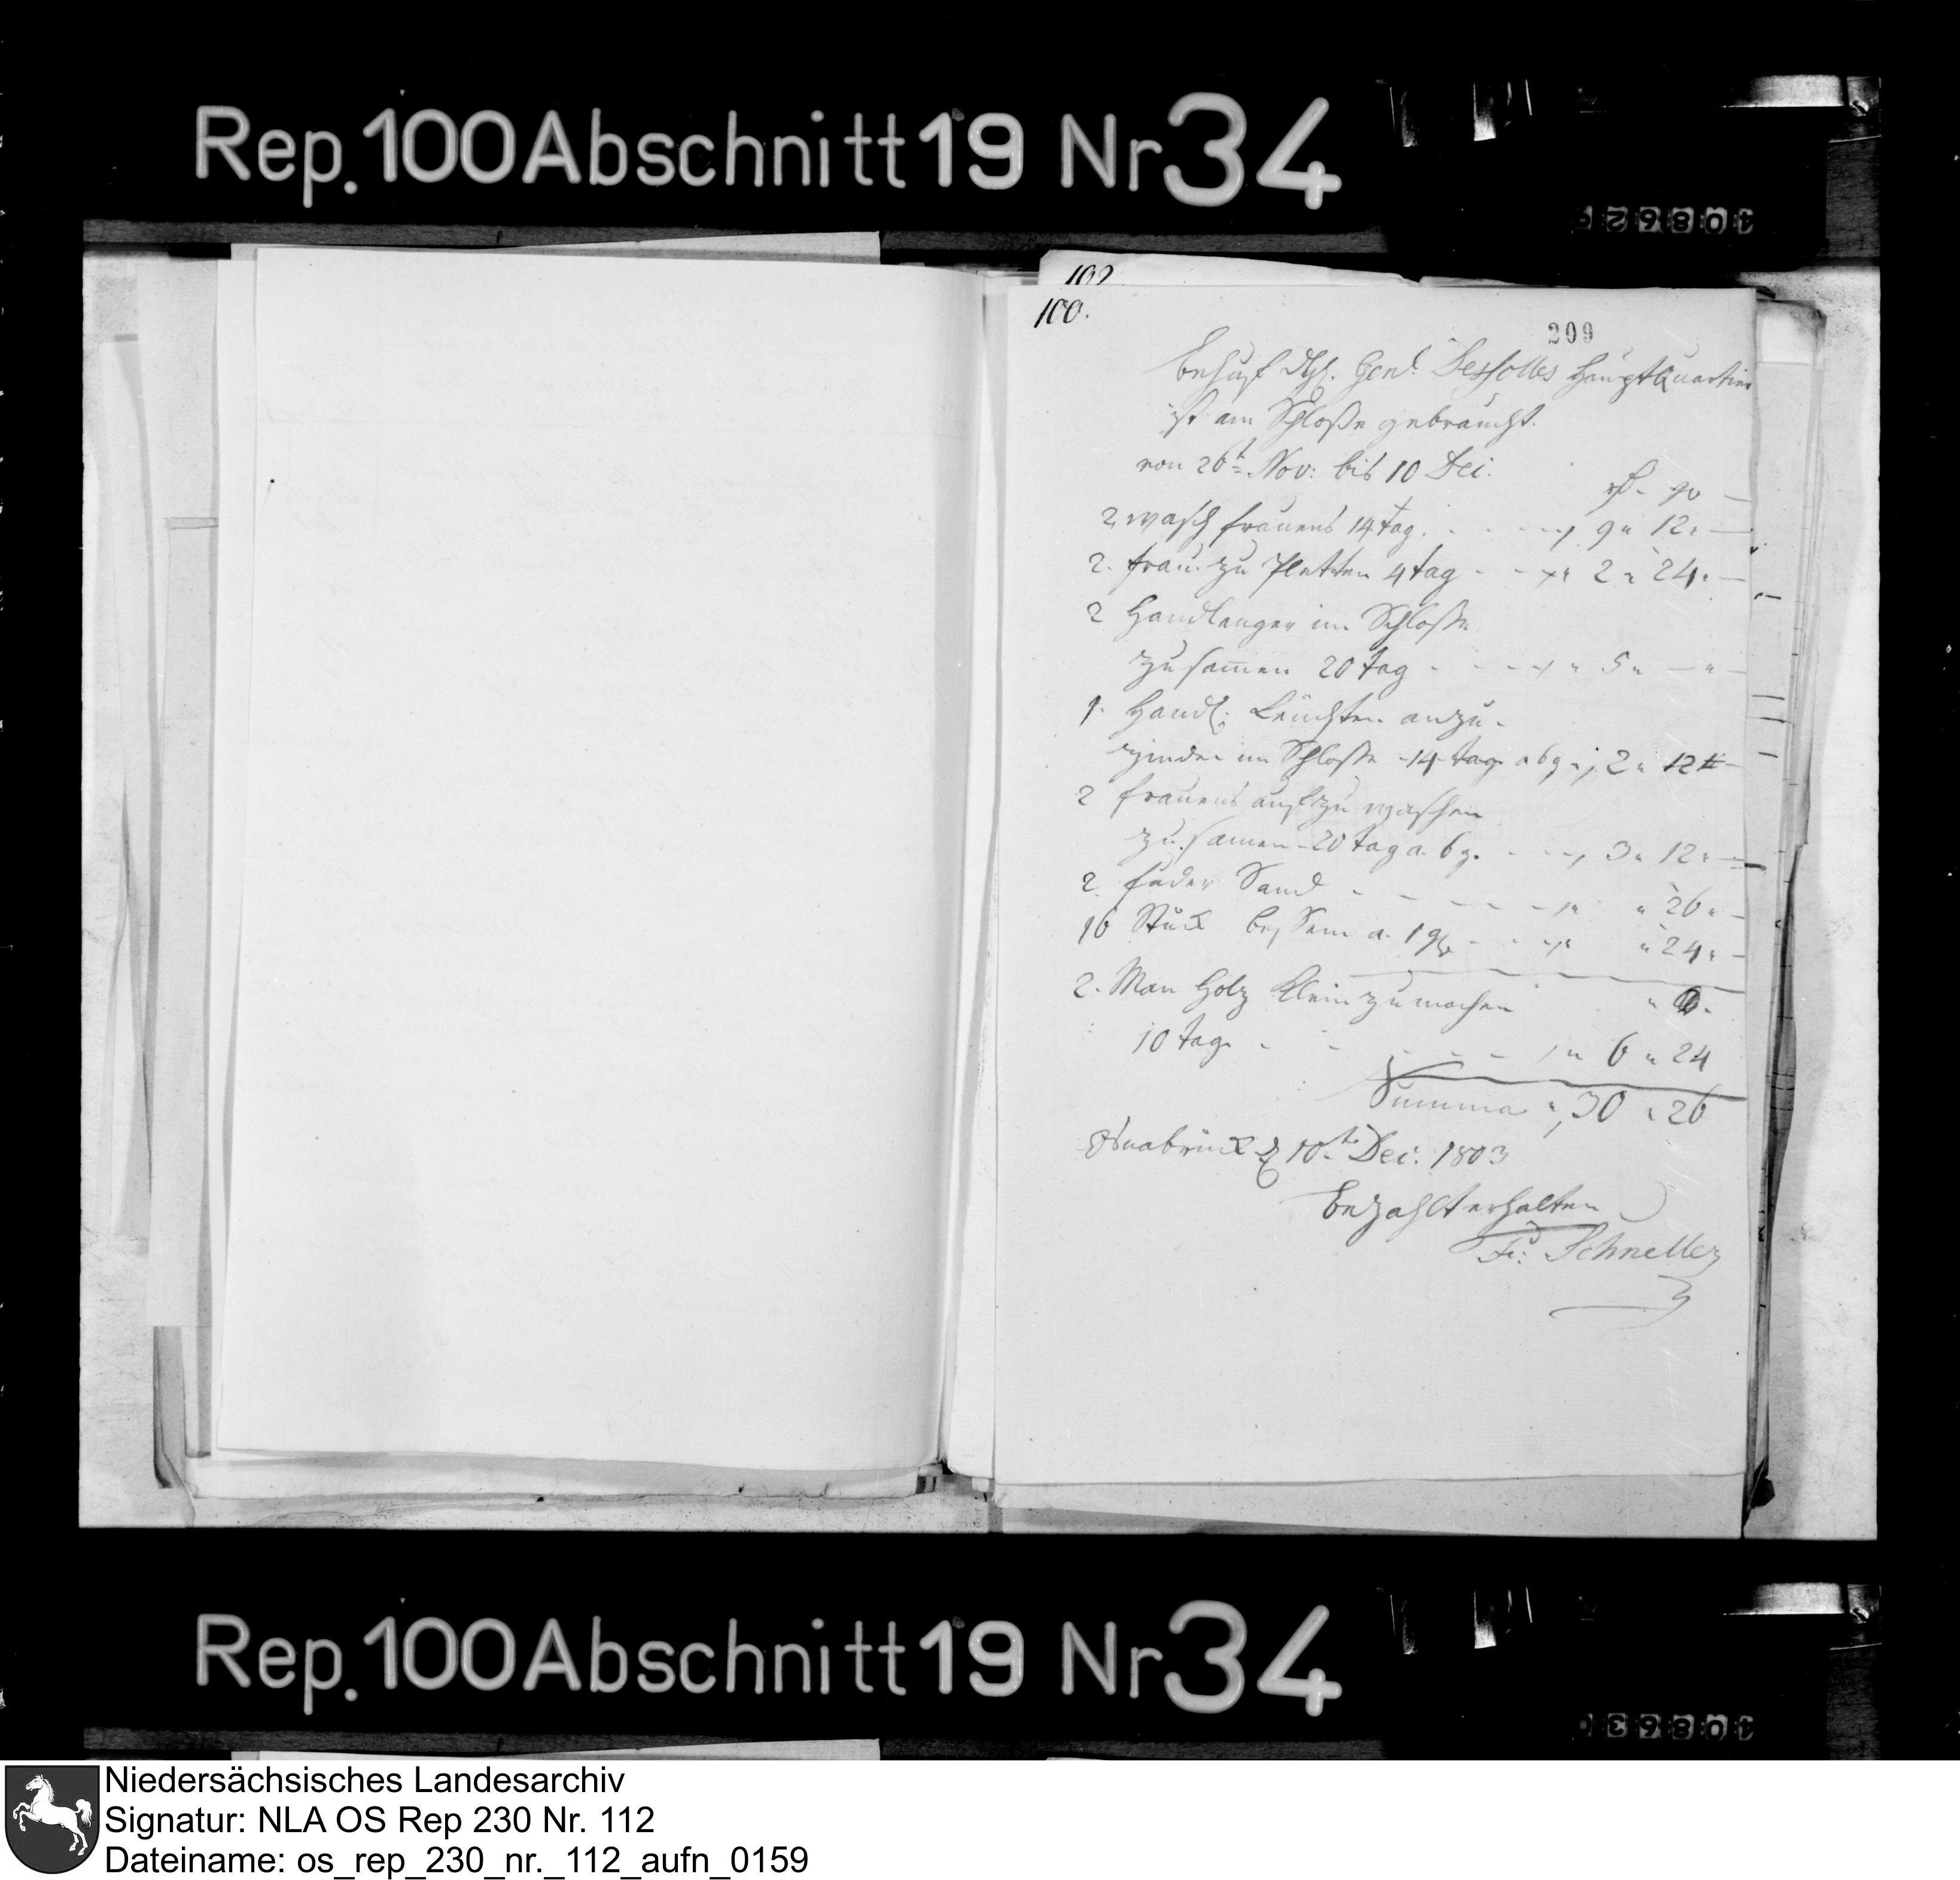 Rep. 100 Abschnitt 19 Nr 34
102
100.
209
Behuf Genl. Dessolles HauptQuartier
ist am Schloße gebraucht.
von 26t Nov: bis 10 Dec:
rth. gr —
2 wasch frauens 14 tag. - - - 9 " 12 " —
2. frau zu Pletten 4 tag - - - 2 " 24 " —
2 Handlanger im Schloße
zusamen 20 tag - - - - " 5 " — " —
1. Handl: Leuchten anzu-
zünden im Schloße -14 tag a 6 g " 2 " 12 " —
2 frauens aufzuwaschen
zusamen -20 tag a. 6 g. - - - 3 " 12 " —
2 fuder Sand - - - - - - " " 26 " —
16 Stück beßem a. 1 g - - - " " 24 " —
2. Man Holz klein zu machen
10 tag - - - - - - " 6 " 24
Summa " 30 " 26
Osnabrück d 10te Dec: 1803
Bezahlt erhalten
Fr: Schneller
Rep. 100 Abschnitt 19 Nr 34
Niedersächsisches Landesarchiv
Signatur: NLA OS Rep 230 Nr. 112
Dateiname: os_rep_230_nr._112_aufn_0159